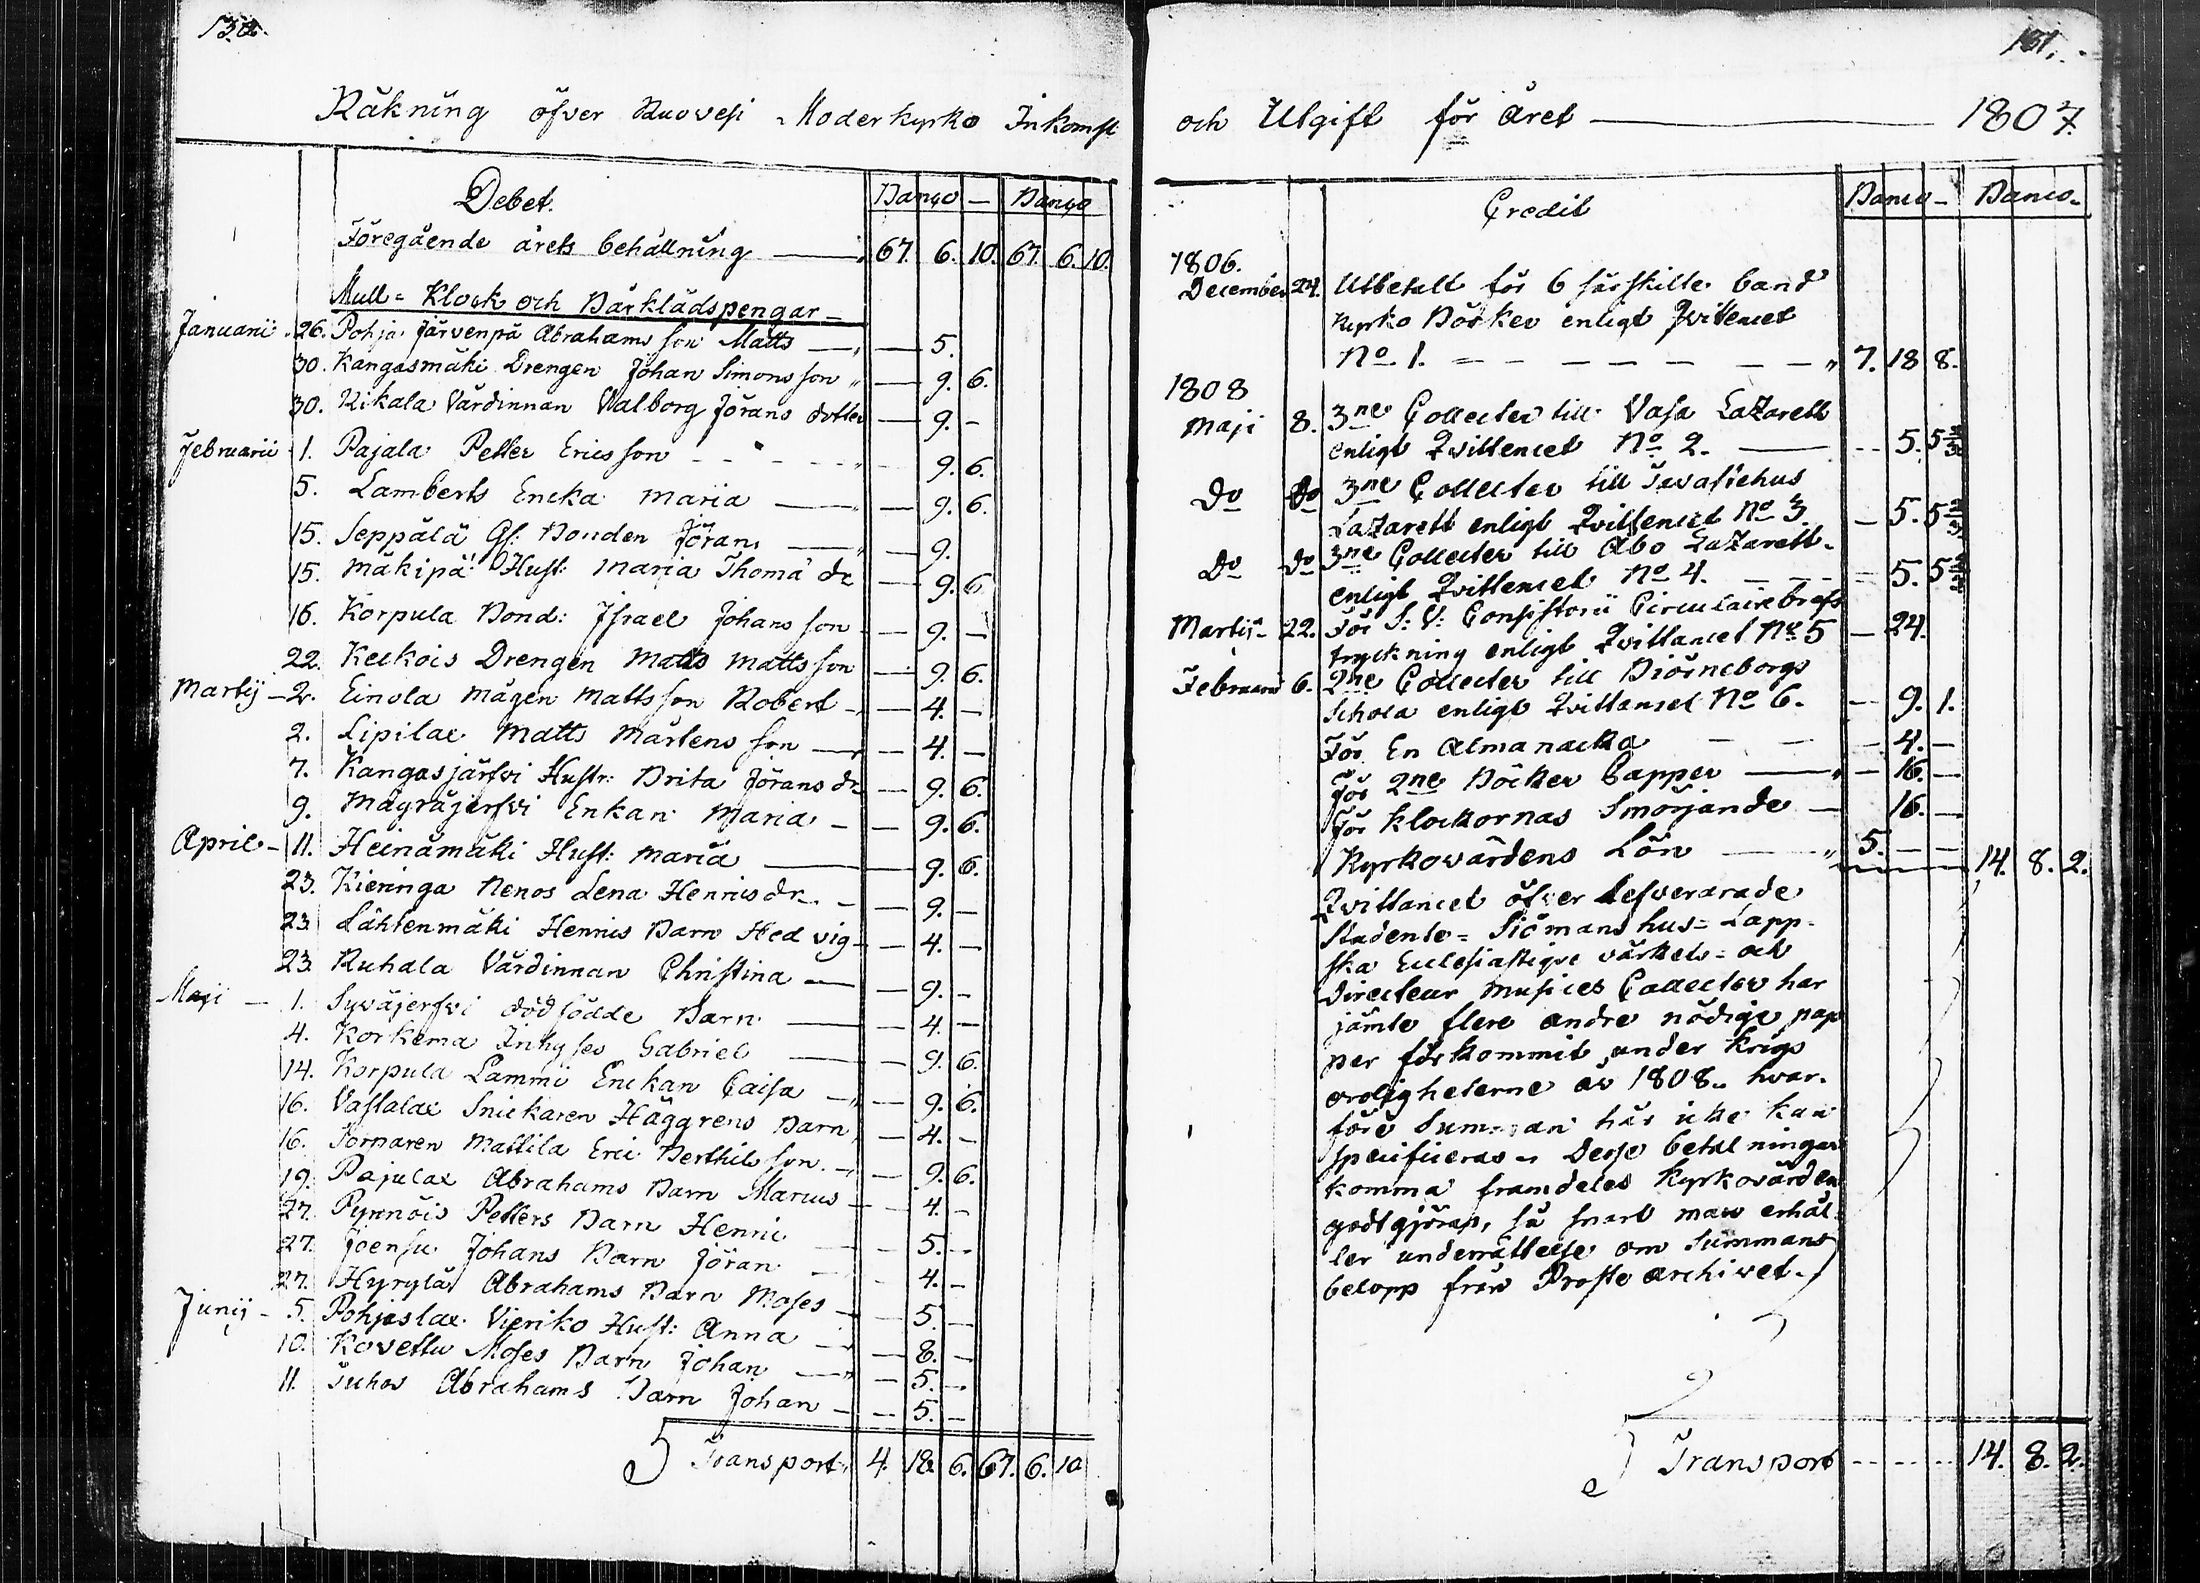 130.
Räkning öfver Ruovesi Moderkyrko Inkomst
Debet. Banco — Banco
Föregående årets behållning — 67. 6. 10. 67. 6. 10.
Mull= Klock och Bärklädspengar —
Januarii 26. Pohja Järvenpä Abrahams son Matts — — 5.
30. Kangasmäki Drengen Johan Simons son — 9. 6.
30. Kikala Värdinnan Valborg Jörans dotter — 9. -
Februarii 1. Pajala Petter Ericsson - - - - 9. 6.
5. Lamberts Encka Maria — — 9. 6.
15. Seppälä Gl: Bonden Jöran — — 9.
15. Mäkipä Hust: Maria Thomä dr — 9. 6.
16. Korpula Bond: Israel Johans son — 9. —
22. Keckois Drengen Matts Matts son — 9. 6.
Martij — 2. Einola Mågen Matts son Robert — — 4. —
2. Lipilae Matts Mårtens son — — 4. —
7. Kangasjärfvi Hustr: Brita Jörans dr — 9. 6.
9. Mägräjerfvi Enkan Maria — — 9. 6.
April — 11. Heinämäki Hust: Maria — — 9. 6.
23. Kieninga Nenos Lena Hennis dr. — — 9. —
23. Lähtenmäki Hennis Barn Hedvig — — 4. —
23. Ruhala Värdinnan Christina — — 9. -
Maji — 1. Syväjerfvi dödfödde Barn — — 4. —
4. Korkema Inhyses Gabriel — — 9. 6.
14. Korpula Lammi Enckan Caisa — — 9. 6.
16. Vastalae Snickaren Häggrens Barn — 4. —
16. Tornaren Mattila Eric Berthils son — 9. 6.
19. Pajulae Abrahams Barn Marcus — 4. -
27. Pynnöis Petters Barn Henric — 5. -
27. Joensu Johans Barn Jöran — 4. -
27. Hyrylä Abrahams Barn Moses — 5. —
Junij — 5. Pohjaslae Vieriko Hust: Anna — — 8. —
10. Kovettu Moses Barn Johan — — 5. —
11. Tuhos Abrahams Barn Johan — — 5. —
Transport 4. 18. 6. 67. 6. 10
131.
och Utgift för Året — 1807.
Credit Banco — Banco —
1806.
December 24. Utbetalt för 6 särskilte band
Kyrko Böcker enligt Qvittencet
No 1. — — — — — — 7. 18 8.
1808
Maji 8. 3ne Collecter till Vasa Lazarett
enligt Qvittencet No 2. — - - 5. 5 2/3
Do Do 3ne Collecter till Tavastehus
Lazarett enligt Qvittencet No 3. — 5. 5 2/3
Do Do 3ne Collecter till Åbo Lazarett
enligt Qvittencet No 4. — — 5. 5 2/3
Martij — 22. För S: V: Consistorii Circulairebrefs
tryckning enligt Qvittancet No 5 — 24.
Februarii 6. 2ne Collecter till Biörneborgs
Schola enligt Qvittancet No 6. — 9. 1.
För En Almanacka — — — 4. —
För 2ne Böcker Papper — — 16. —
För Klockornas Smörjande — 16. —
Kyrkovärdens Lön — 5. — — 14. 8. 2.
Qvittancet öfver lefvererade
Studente= Siömans hus= Lapp-
ska Ecclesiastique värkets= och
Directeur Musices Collecter har
jämte flere andre nödige pap
per förkommit under krigs
oroligheterne år 1808. hvar-
före Summan här icke kan
specificeras — Desse betalningar
komma framdeles Kyrkovärden
godtgjöras, så snart man erhål-
ler underrättelse om Summans
belopp från Proste archivet.
Transport - - - - - 14. 8. 2.